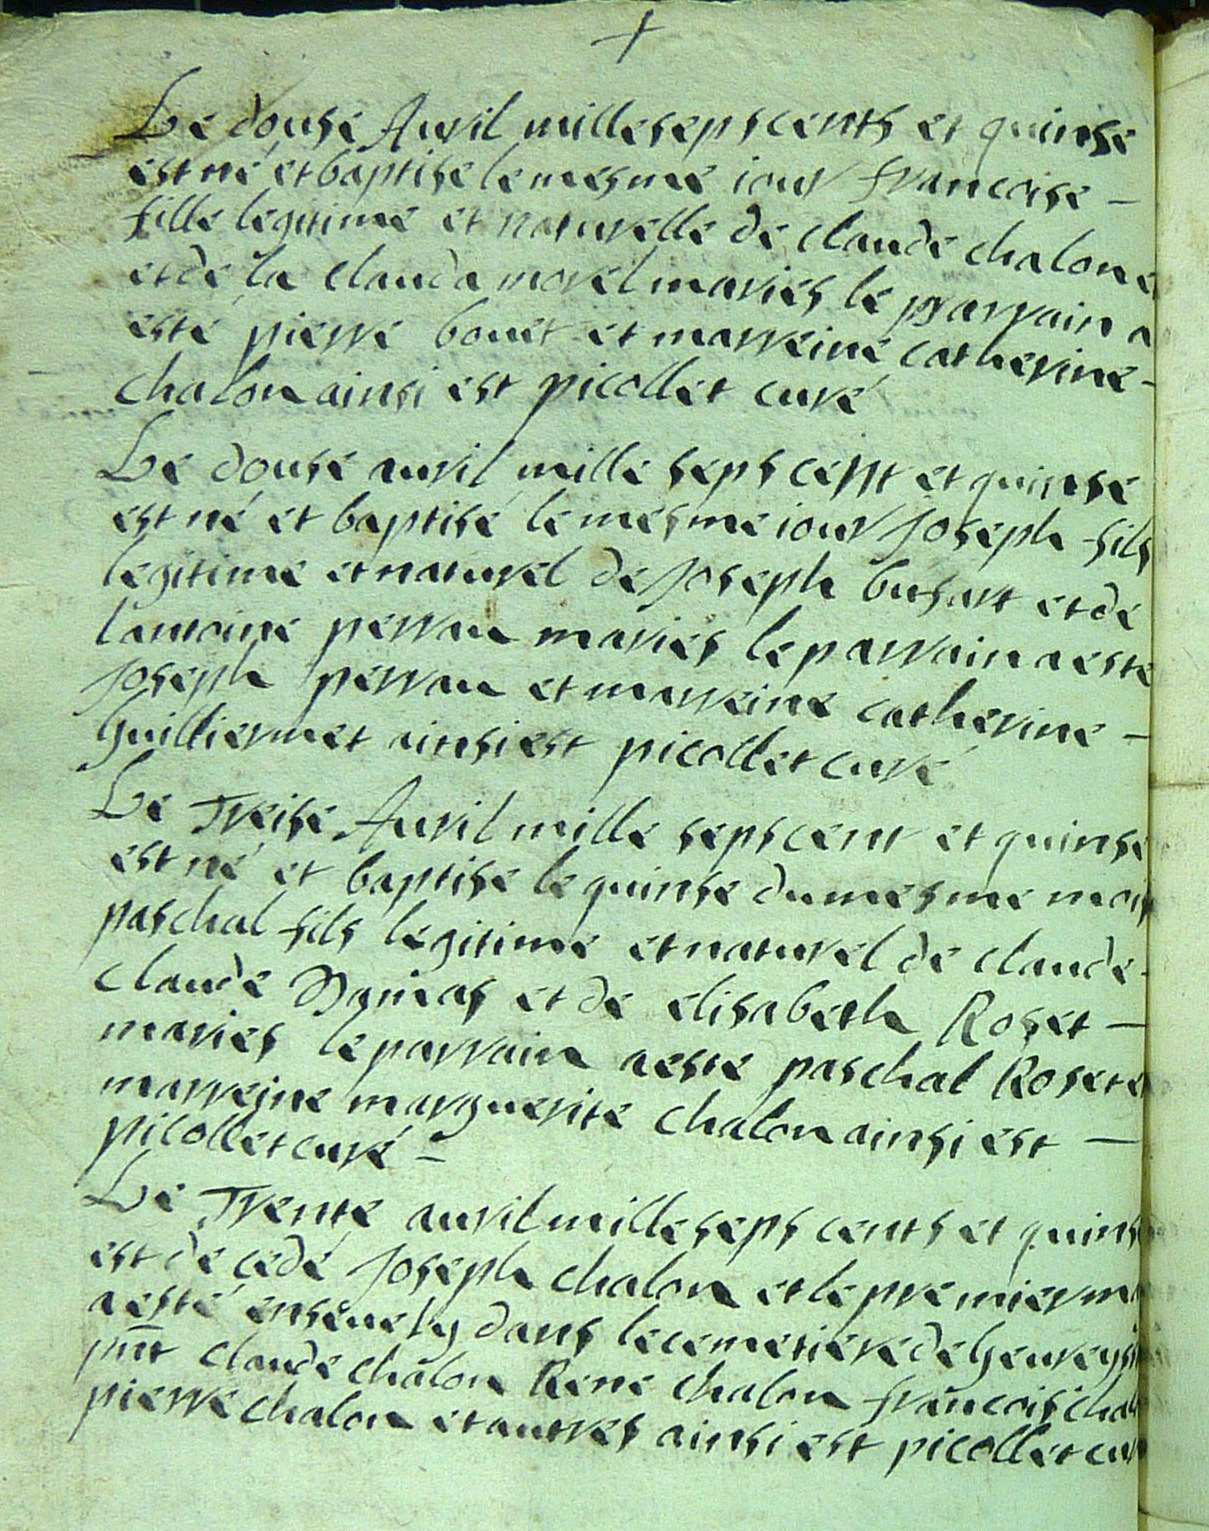 Le douse Auril mille seps cents et quinse
est né et baptise le mesme iour francoise
fille legitime et naturelle de claude chalon
et de la clauda morel maries le parrain a
esté pierre bouet et marreine catherine
chalon ainsi est picollet curé
Le douse auril mille seps cent et quinse
est né et baptisé le mesme iour Joseph fils
legitime et naturel de Joseph busart et de
lantoine perran maries le parrain a esté
Joseph perran et marreine catherine
Guilliermet ainsi est picollet curé
Le Treise Auril mille seps cent et quinse
est né et baptise le quinse du mesme mois
paschal fils legitime et naturel de claude
claude et de elisabeth Roset
maries le parrain a esté paschal Roset et
marreine marguerite chalon ainsi est
picollet curé
Le Trente auril mille seps cents et quinse
est decedé Joseph chalon et le premier
a esté enseuely dans le cemetiere de
pnt claude chalon René chalon francois
pierre chalon et autres ainsi est picollet